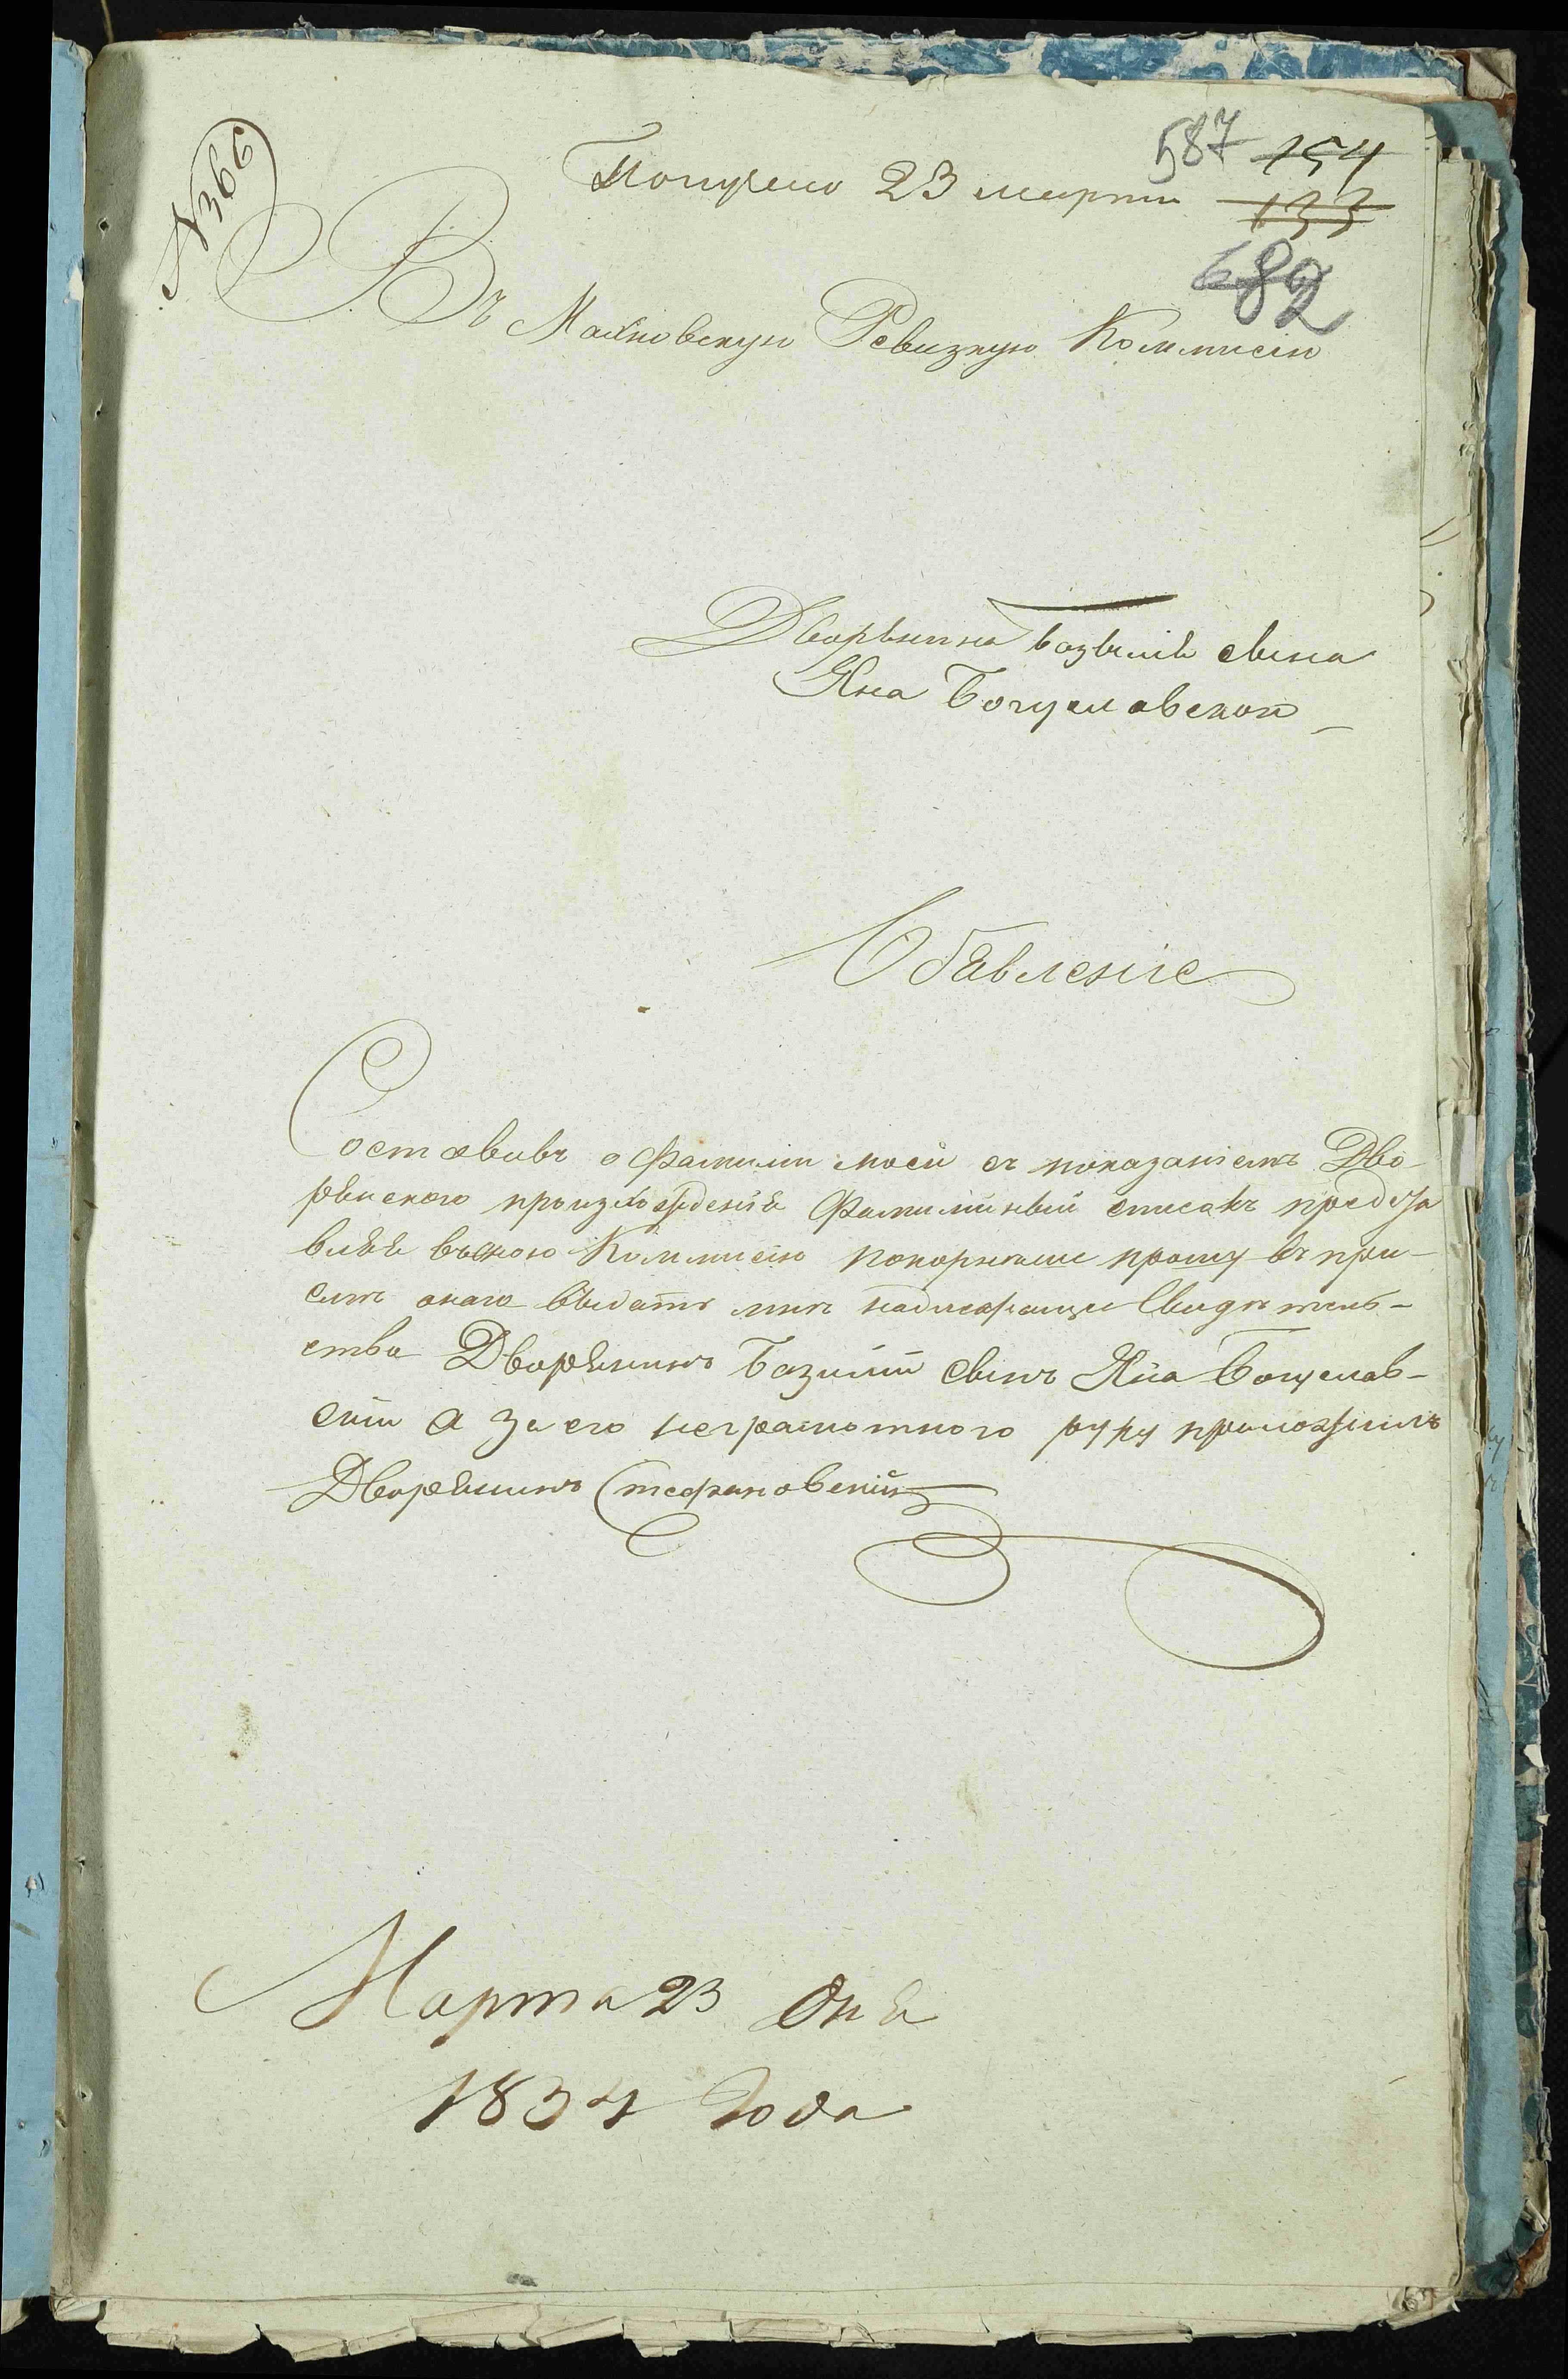 №366
Получено 23 марта
587 154
133
682
Въ Махновскую Ревизкую Коммисію
Дворянина Базилія сына
Яна Богуславского
Обявленіе
Составивъ о фамиліи моей съ показаніемъ Дво-
рянского произхожденія Фамилійный списокъ предста
вляя въ оною Коммисію покорнейше прошу въ при-
емъ онаго выдать мнѣ надлежащее Свидѣтель-
ства Дворянинъ Базилій сынъ Яна Богуслав-
скій а за его неграмотного руку приложилъ
Дворянинъ Стефановскій
Марта 23 дня
1834 Года